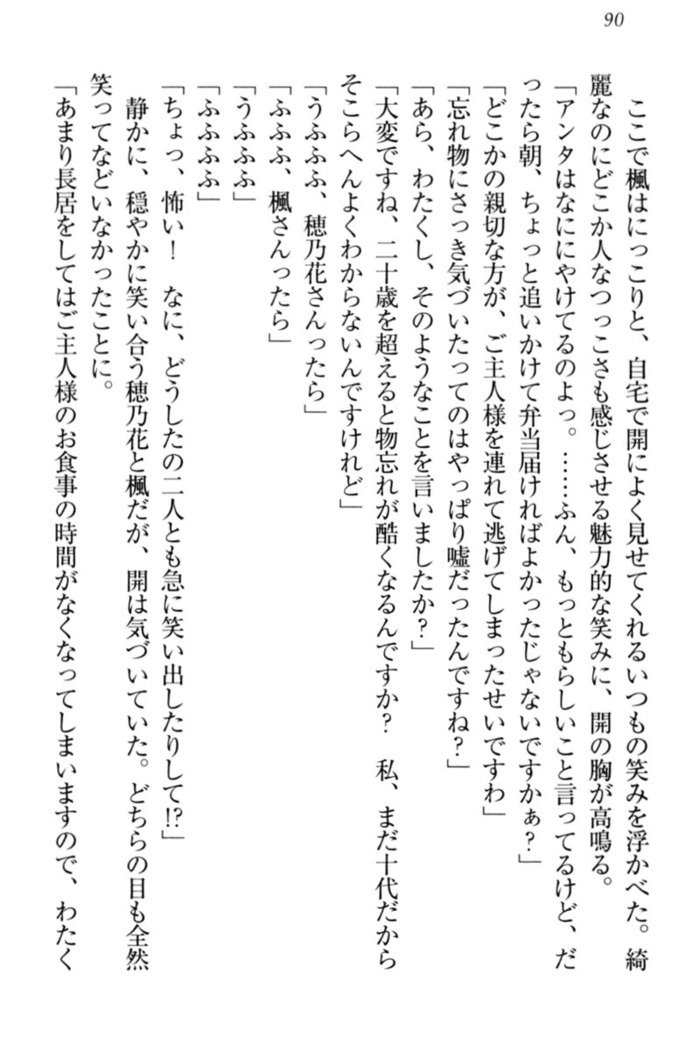 90
　ここで楓はにっこりと、自宅で開によく見せてくれるいつもの笑みを浮かべた。綺
麗なのにどこか人なつっこさも感じさせる魅力的な笑みに、開の胸が高鳴る。
「アンタはなににやけてるのよっ。……ふん、もっともらしいこと言ってるけど、だ
ったら朝、ちょっと追いかけて弁当届ければよかったじゃないですかぁ？」
「どこかの親切な方が、ご主人様を連れて逃げてしまったせいですわ」
「忘れ物にさっき気づいたってのはやっぱり嘘だったんですね？」
「あら、わたくし、そのようなことを言いましたか？」
「大変ですね、二十歳を超えると物忘れが酷くなるんですか？　私、まだ十代だから
そこらへんよくわからないんですけれど」
「うふふふ、穂乃花さんったら」
「ふふふ、楓さんったら」
「うふふふ」
「ふふふふ」
「ちょっ、怖い！　なに、どうしたの二人とも急に笑い出したりして!?」
　静かに、穏やかに笑い合う穂乃花と楓だが、開は気づいていた。どちらの目も全然
笑ってなどいなかったことに。
「あまり長居をしてはご主人様のお食事の時間がなくなってしまいますので、わたく